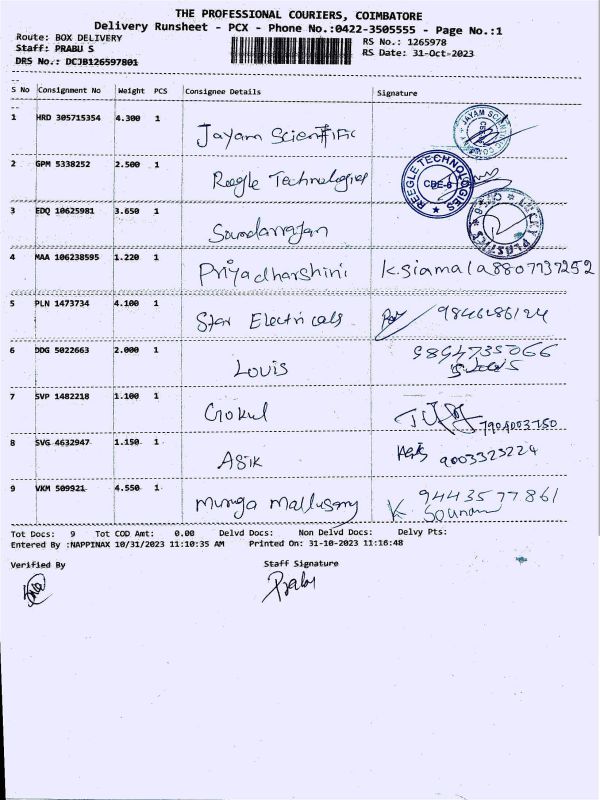 THE PROFESSIONAL COURIERS, COIMBATORE
Delivery Runsheet - PCX - Phone No.:0422-3505555 - Page No.:1
Route: BOX DELIVERY RS No.: 1265978
Staff: PRABU S RS Date: 31-Oct-2023
DRS No.: DCJB126597801
S No Consignment No Weight PCS Consignee Details Signature
1 HRD 305715354 4.300 1 Jayam Scientific JAYAM
2 GPM 5338252 2.500 1 Reegle Technologies REEGLE TECHNOLOGIES CBE-6
3 EDQ 10625981 3.650 1 Soundarrajan LUCKY PLASTICS
4 MAA 106238595 1.220 1 Priyadharshini k.siamala 8807737252
5 PLN 1473734 4.100 1 Star Electricals
6 DDG 5022663 2.000 1 Louis 9894735066
7 SVP 1482218 1.100 1 Gokul
8 SVG 4632947 1.150 1 Asik 9003325224
9 VKM 509921 4.550 1 Muruga Mallusamy 9443577861
K
Tot Docs: 9 Tot COD Amt: 0.00 Delvd Docs: Non Delvd Docs: Delvy Pts:
Entered By :NAPPINAX 10/31/2023 11:10:35 AM Printed On: 31-10-2023 11:16:48
Verified By Staff Signature
Prabu